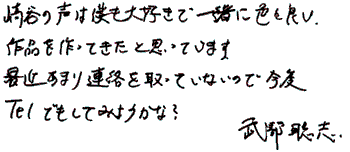 崎谷の声は僕も大好きで一緒に色々良い
作品を作ってきたと思っています
最近あまり連絡を取っていないので今度
Telでもしてみようかな?
武部聡志.